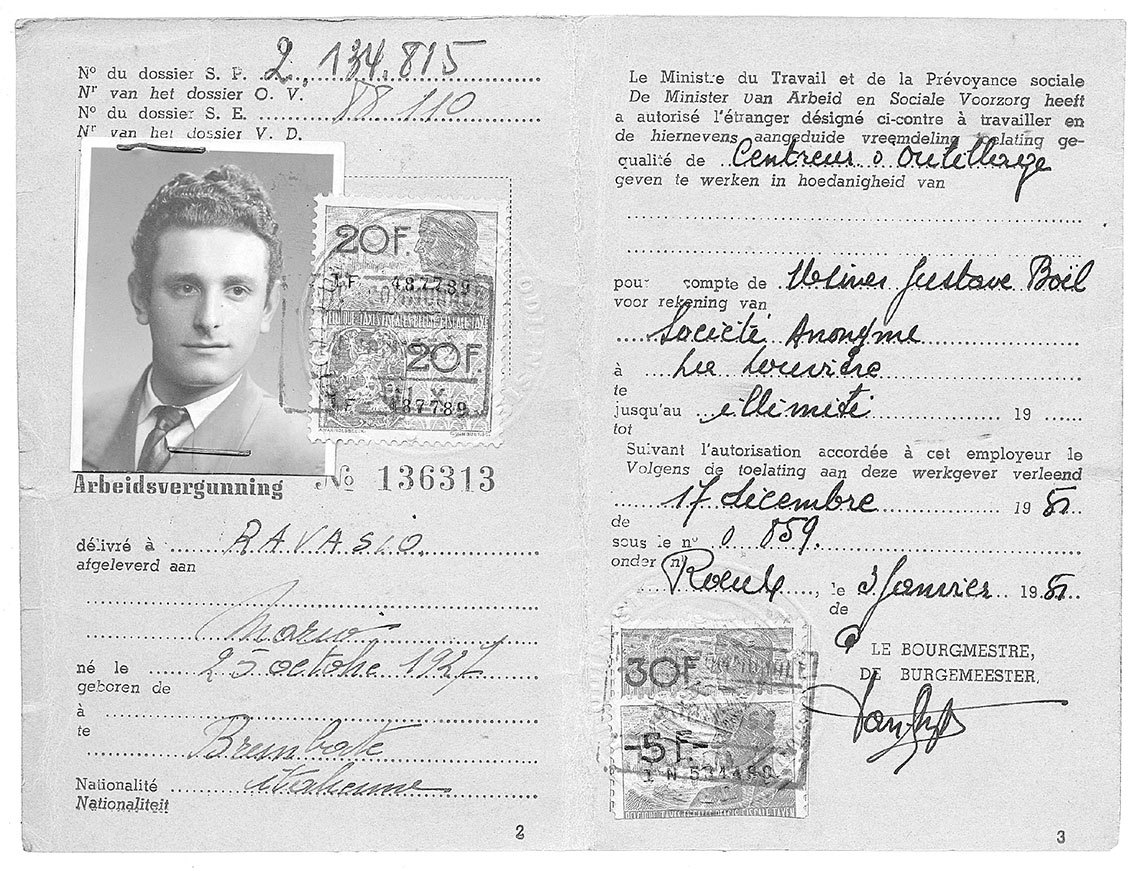 Nº du dossier S. P. 2.134.815
Nr van het dossier O. V.
Nº du dossier S. E. 88 110
Nr van het dossier V. D.
20F.
1F 487789
20F
1F 487789
Arbeidsvergunning Nº 136313
délivré à RAVASIO.
afgeleverd aan
Mario
né le 25 octobre 1927
geboren de
à
te
Brembate
Nationalité italienne
Nationaliteit
2
Le Ministre du Travail et de la Prévoyance sociale
De Minister van Arbeid en Sociale Voorzorg heeft
a autorisé l'étranger désigné ci-contre à travailler en
de hiernevens aangeduide vreemdeling toelating ge-
qualité de Centreur d'outillage
geven te werken in hoedanigheid van
pour compte de Usines Gustave Boël
voor rekening van
Société Anonyme
à La Louvière
te
jusqu'au illimité 19
tot
Suivant l'autorisation accordée à cet employeur le
Volgens de toelating aan deze werkgever verleend
17 décembre 19
de
sous le nº 0 859.
onder nr
Roeulx, le 3 Janvier 19
de
LE BOURGMESTRE,
DE BURGEMEESTER,
30F.
-5F-
1 N
3